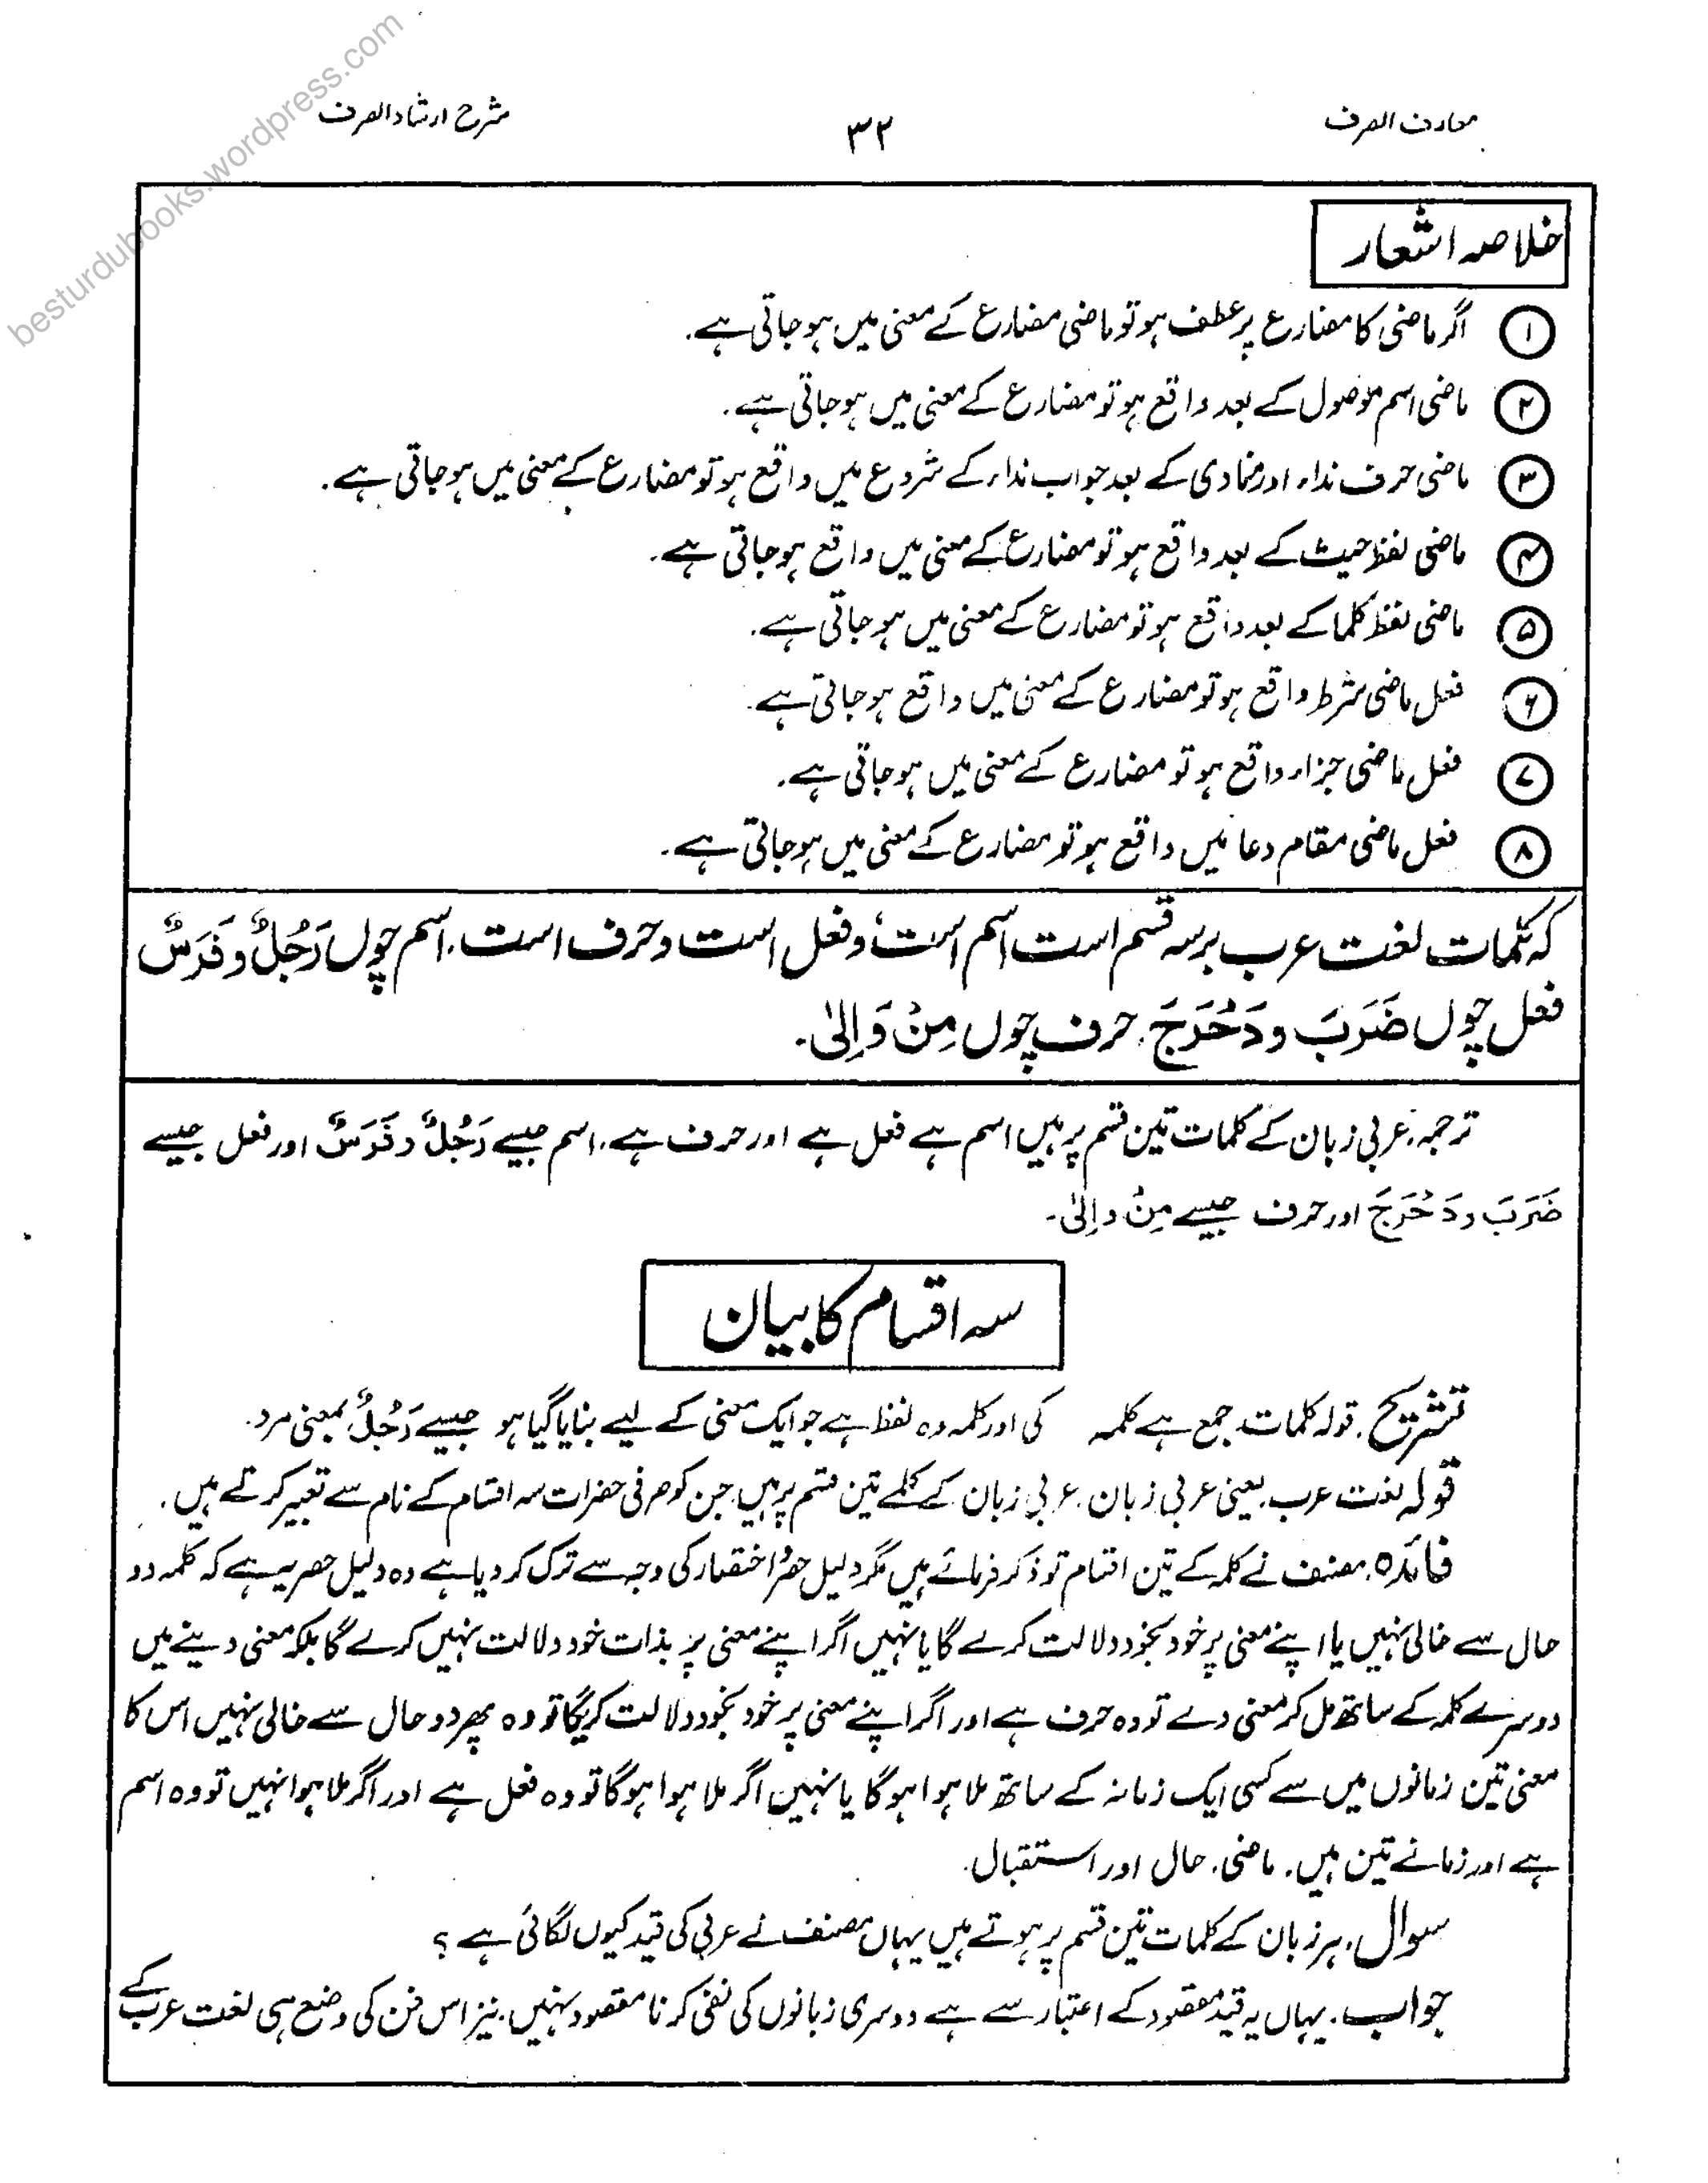 معارف الصرف
۳۲
شرح ارشاد الصرف
besturdubooks.wordpress.com
خلاصہ اشعار
۱ اگر ماضی کا مضارع پر عطف ہو تو ماضی مضارع کے معنی میں ہو جاتی ہے.
۲ ماضی اسم موصول کے بعد واقع ہو تو مضارع کے معنی میں ہو جاتی ہے.
۳ ماضی حرف نداء اور منادی کے بعد جواب نداء کے شروع میں واقع ہو تو مضارع کے معنی میں ہو جاتی ہے.
۴ ماضی لفظ حیث کے بعد واقع ہو تو مضارع کے معنی میں واقع ہو جاتی ہے.
۵ ماضی لفظ کلما کے بعد واقع ہو تو مضارع کے معنی میں ہو جاتی ہے.
۶ فعل ماضی شرط واقع ہو تو مضارع کے معنی میں واقع ہو جاتی ہے.
۷ فعل ماضی جزاء واقع ہو تو مضارع کے معنی میں ہو جاتی ہے.
۸ فعل ماضی مقام دعا میں واقع ہو تو مضارع کے معنی میں ہو جاتی ہے.
کہ کلمات لغت عرب بر سہ قسم است اسم است و فعل است و حرف است. اسم چوں رَجُلٌ و فَرَسٌ
فعل چوں ضَرَبَ و دَحْرَجَ. حرف چوں مِنْ وَ اِلیٰ.
ترجمہ. عربی زبان کے کلمات تین قسم پر ہیں اسم ہے فعل ہے اور حرف ہے. اسم جیسے رَجُلٌ و فَرَسٌ اور فعل جیسے
ضَرَبَ و دَحْرَجَ اور حرف جیسے مِنْ و اِلیٰ۔
سہ اقسام کا بیان
تشریح. قولہ کلمات جمع ہے کلمہ کی اور کلمہ وہ لفظ ہے جو ایک معنی کے لیے بنایا گیا ہو جیسے رَجُلٌ بمعنی مرد.
قولہ لغت عرب. یعنی عربی زبان. عربی زبان کے کلمے تین قسم پر ہیں جن کو صرفی حضرات سہ اقسام کے نام سے تعبیر کرتے ہیں.
فائدہ. مصنف نے کلمہ کے تین اقسام تو ذکر فرمائے ہیں مگر دلیل حصر اختصار کی وجہ سے ترک کر دیا ہے وہ دلیل حصر یہ ہے کہ کلمہ دو
حال سے خالی نہیں یا اپنے معنی پر خود بخود دلالت کرے گا یا نہیں اگر اپنے معنی پر بذات خود دلالت نہیں کرے گا بلکہ معنی دینے میں
دوسرے کلمہ کے ساتھ مل کر معنی دے تو وہ حرف ہے اور اگر اپنے معنی پر خود بخود دلالت کریگا تو وہ پھر دو حال سے خالی نہیں اس کا
معنی تین زمانوں میں سے کسی ایک زمانہ کے ساتھ ملا ہوا ہو گا یا نہیں اگر ملا ہوا ہو گا تو وہ فعل ہے اور اگر ملا ہوا نہیں تو وہ اسم
ہے اور زمانے تین ہیں. ماضی. حال اور استقبال.
سوال. ہر زبان کے کلمات تین قسم پر ہوتے ہیں یہاں مصنف نے عربی کی قید کیوں لگائی ہے ؟
جواب. یہاں یہ قید مقصود کے اعتبار سے ہے دوسری زبانوں کی نفی کرنا مقصود نہیں. نیز اس فن کی وضع ہی لغت عرب کے